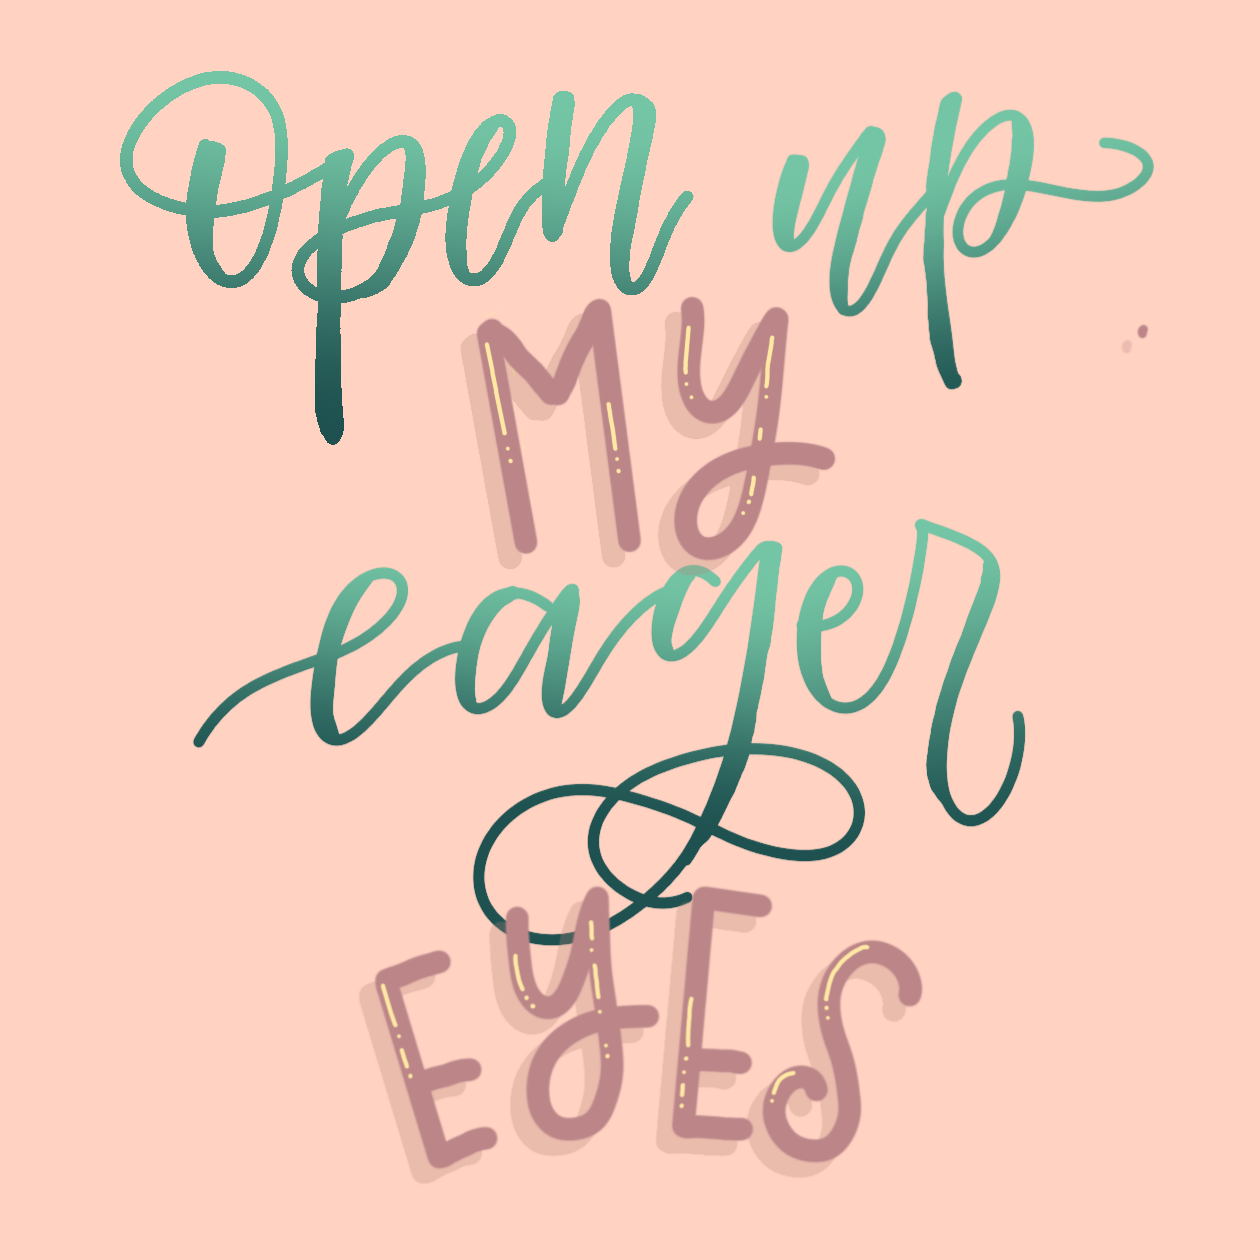 open up
MY
eager
EYES